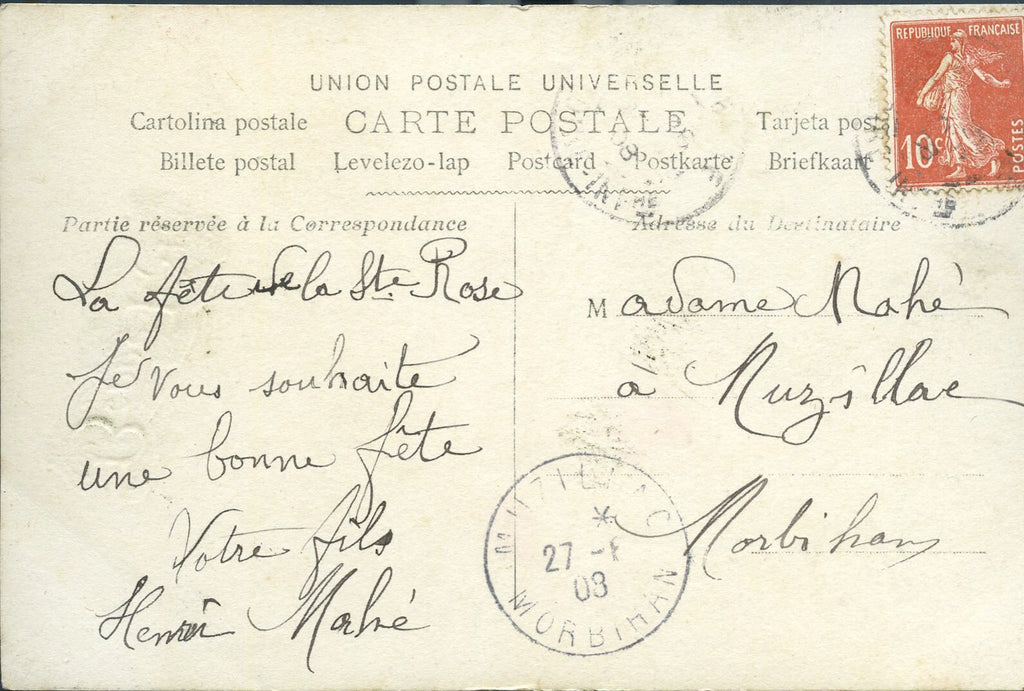 UNION POSTALE UNIVERSELLE
Cartolina postale CARTE POSTALE Tarjeta post
Billete postal Levelezo-lap Postcard Postkarte Briefkaart
REPUBLIQUE FRANÇAISE
10c
POSTES
Partie réservée à la Correspondance
La fête de la Ste Rose
Je vous souhaite
une bonne fête
Votre fils
Henri Mahé
Adresse du Destinataire
Madame Mahé
a Muzillac
Morbihan
MUZILLAC
27
08
MORBIHAN